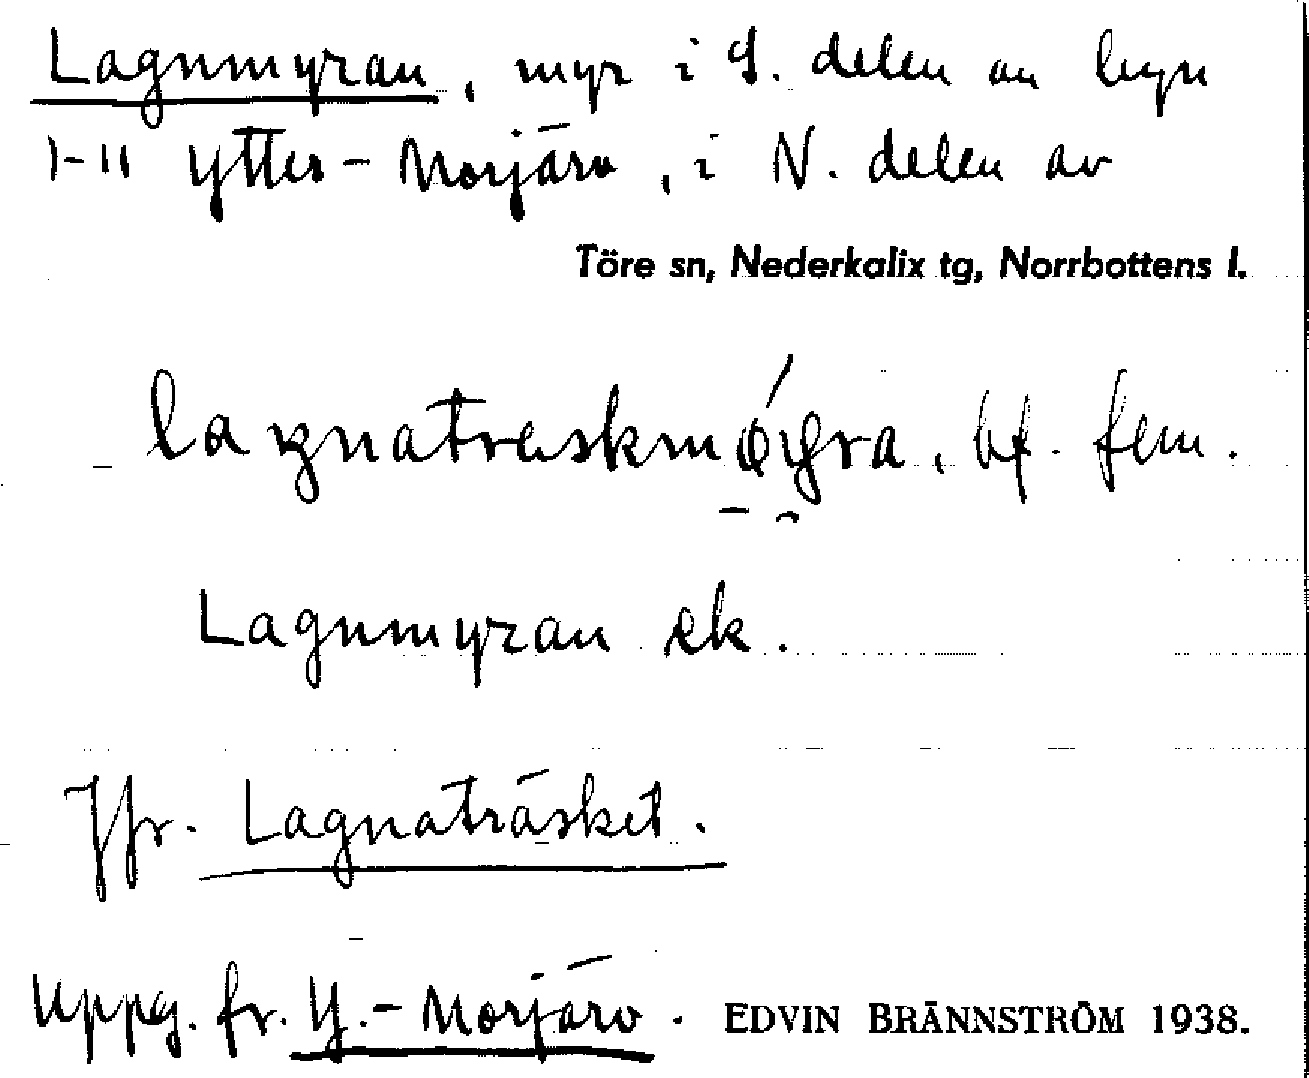 Lagnmyran, myr i S. delen av byn
1-11 Ytter-Morjärv, i N. delen av
Töre sn, Nederkalix tg, Norrbottens l.
bf. fem.
Lagnmyran ek.
Jfr. Lagnaträsket.
Uppg. fr. Y.-Morjärv. EDVIN BRÄNNSTRÖM 1938.